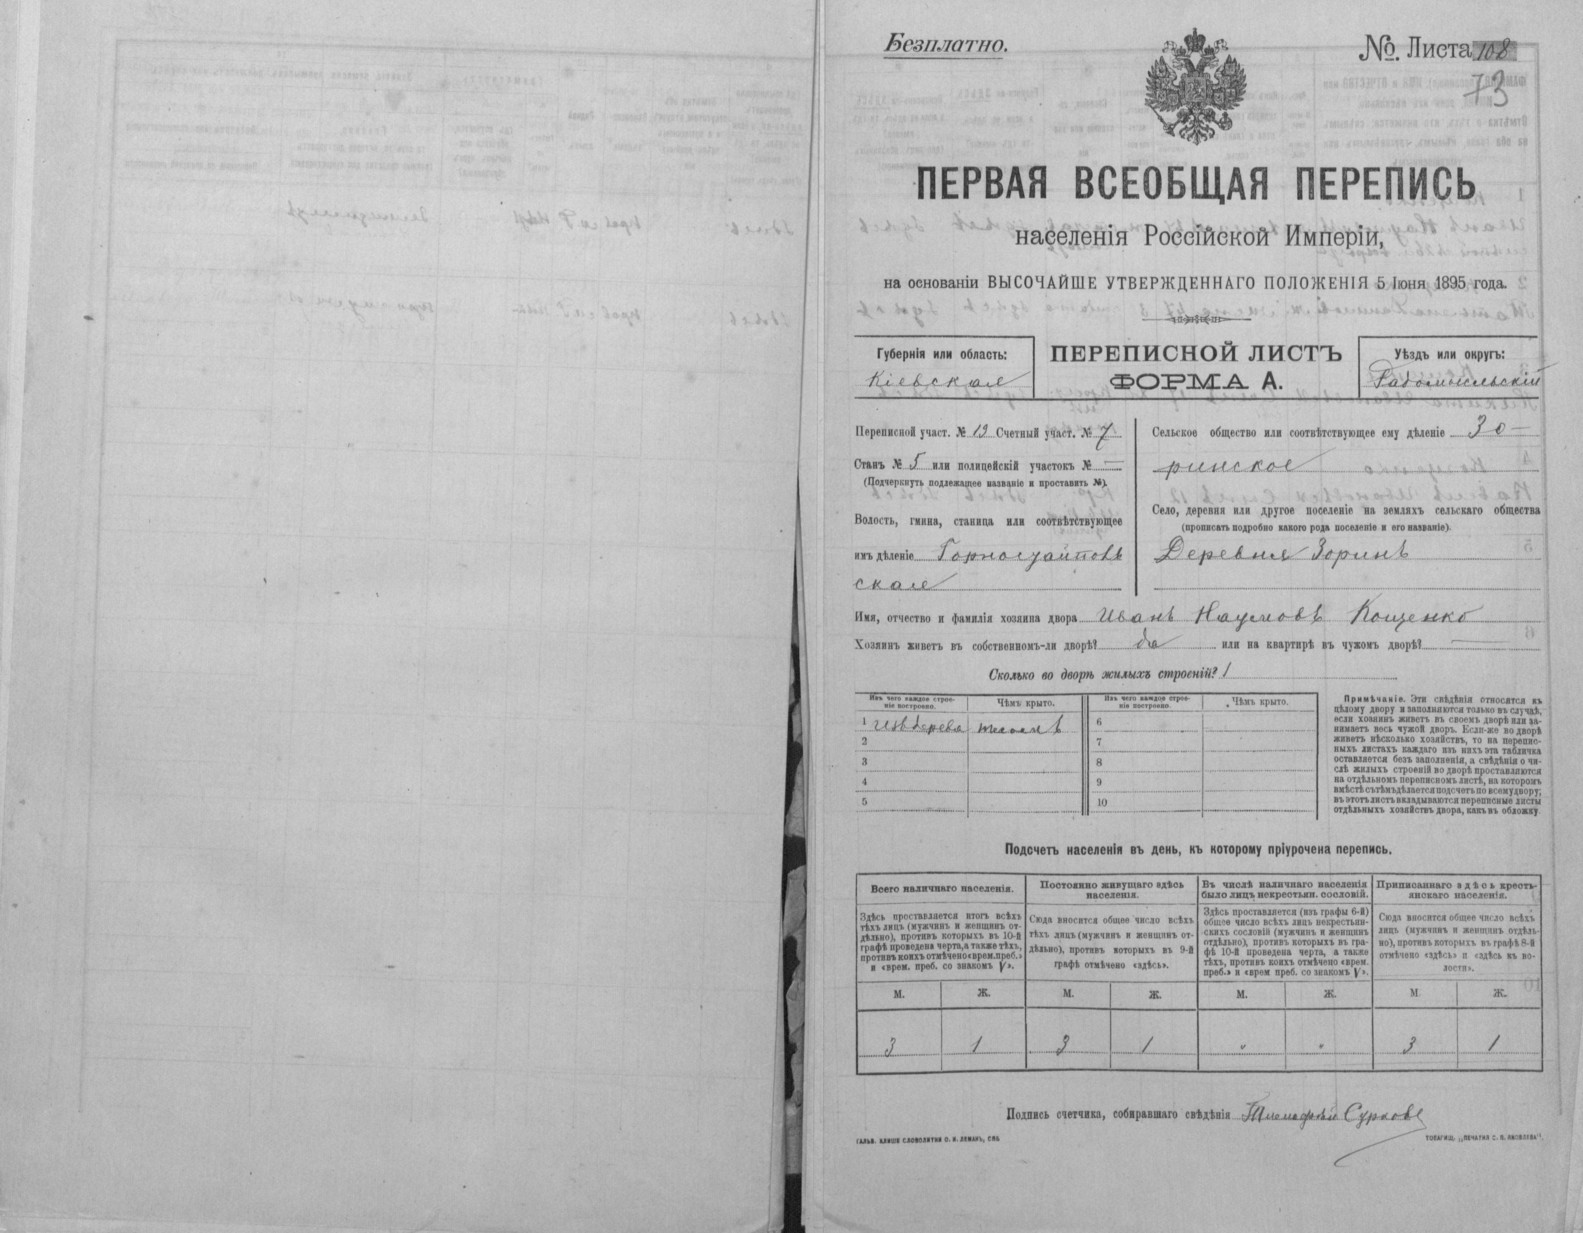 Безплатно.
№. Листа 108
73
ПЕРВАЯ ВСЕОБЩАЯ ПЕРЕПИСЬ
населенія Россійской Имперіи,
на основаніи ВЫСОЧАЙШЕ УТВЕРЖДЕННАГО ПОЛОЖЕНІЯ 5 Іюня 1895 года.
Губернія или область:
Кіевская
ПЕРЕПИСНОЙ ЛИСТЪ
ФОРМА А.
Уѣздъ или округъ:
Радомысльскій
Переписной участ. № 19 Счетный участ. № 7
Станъ № 5 или полицейскій участокъ № —
(Подчеркнуть подлежащее названіе и проставить №).
Волость, гмина, станица или соотвѣтствующее
имъ дѣленіе Горностайпов
ская
Сельское общество или соотвѣтствующее ему дѣленіе Зо-
ринское
Село, деревня или другое поселеніе на земляхъ сельскаго общества
(прописать подробно какого рода поселеніе и его названіе).
Деревня Зоринъ
Имя, отчество и фамилія хозяина двора Иванъ Наумовъ Кощенко
Хозяинъ живетъ въ собственномъ-ли дворѣ? да или на квартирѣ въ чужомъ дворѣ? —
Сколько во дворѣ жилыхъ строеній? 1
Изъ чего каждое строе-
ніе построено.
Чѣмъ крыто.
Изъ чего каждое строе-
ніе построено.
Чѣмъ крыто.
1 Изъ дерева
6
2
7
3
8
4
9
5
10
Примѣчаніе. Эти свѣдѣнія относятся къ
цѣлому двору и заполняются только въ случаѣ,
если хозяинъ живетъ въ своемъ дворѣ или за-
нимаетъ весь чужой дворъ. Если-же во дворѣ
живетъ нѣсколько хозяйствъ, то на перепис-
ныхъ листахъ каждаго изъ нихъ эта табличка
оставляется безъ заполненія, а свѣдѣнія о чи-
слѣ жилыхъ строеній во дворѣ проставляются
на отдѣльномъ переписномъ листѣ, на которомъ
вмѣстѣ съ тѣмъ дѣлается подсчетъ по всему двору;
въ этотъ листъ вкладываются переписные листы
отдѣльныхъ хозяйствъ двора, какъ въ обложку.
Подсчетъ населенія въ день, къ которому пріурочена перепись.
Всего наличнаго населенія.
Здѣсь проставляется итогъ всѣхъ
тѣхъ лицъ (мужчинъ и женщинъ от-
дѣльно), противъ которыхъ въ 10-й
графѣ проведена черта, а также тѣхъ,
противъ коихъ отмѣчено «врем. преб.»
и «врем. преб. со знакомъ V».
Постоянно живущаго здѣсь
населенія.
Сюда вносится общее число всѣхъ
тѣхъ лицъ (мужчинъ и женщинъ от-
дѣльно), противъ которыхъ въ 9-й
графѣ отмѣчено «здѣсь».
Въ числѣ наличнаго населенія
было лицъ некрестьян. сословій.
Здѣсь проставляется (изъ графы 6-й)
общее число всѣхъ лицъ некрестьян-
скихъ сословій (мужчинъ и женщинъ
отдѣльно), противъ которыхъ въ гра-
фѣ 10-й проведена черта, а также
тѣхъ, противъ коихъ отмѣчено «врем.
преб.» и «врем преб. со знакомъ V».
Приписаннаго здѣсь кресть-
янскаго населенія.
Сюда вносится общее число всѣхъ
лицъ (мужчинъ и женщинъ отдѣль-
но), противъ которыхъ въ графѣ 8-й
отмѣчено «здѣсь» и «здѣсь въ во-
лости».
М. Ж. М. Ж. М. Ж. М. Ж.
3 1 3 1 „ „ 3 1
Подпись счетчика, собиравшаго свѣдѣнія Тимофѣй Сурковъ
ГАЛЬВ. КЛИШЕ СЛОВОЛИТНИ О. И. ЛЕМАНЪ, СПБ
ТОВАРИЩ. „ПЕЧАТНЯ С. П. ЯКОВЛЕВА“.